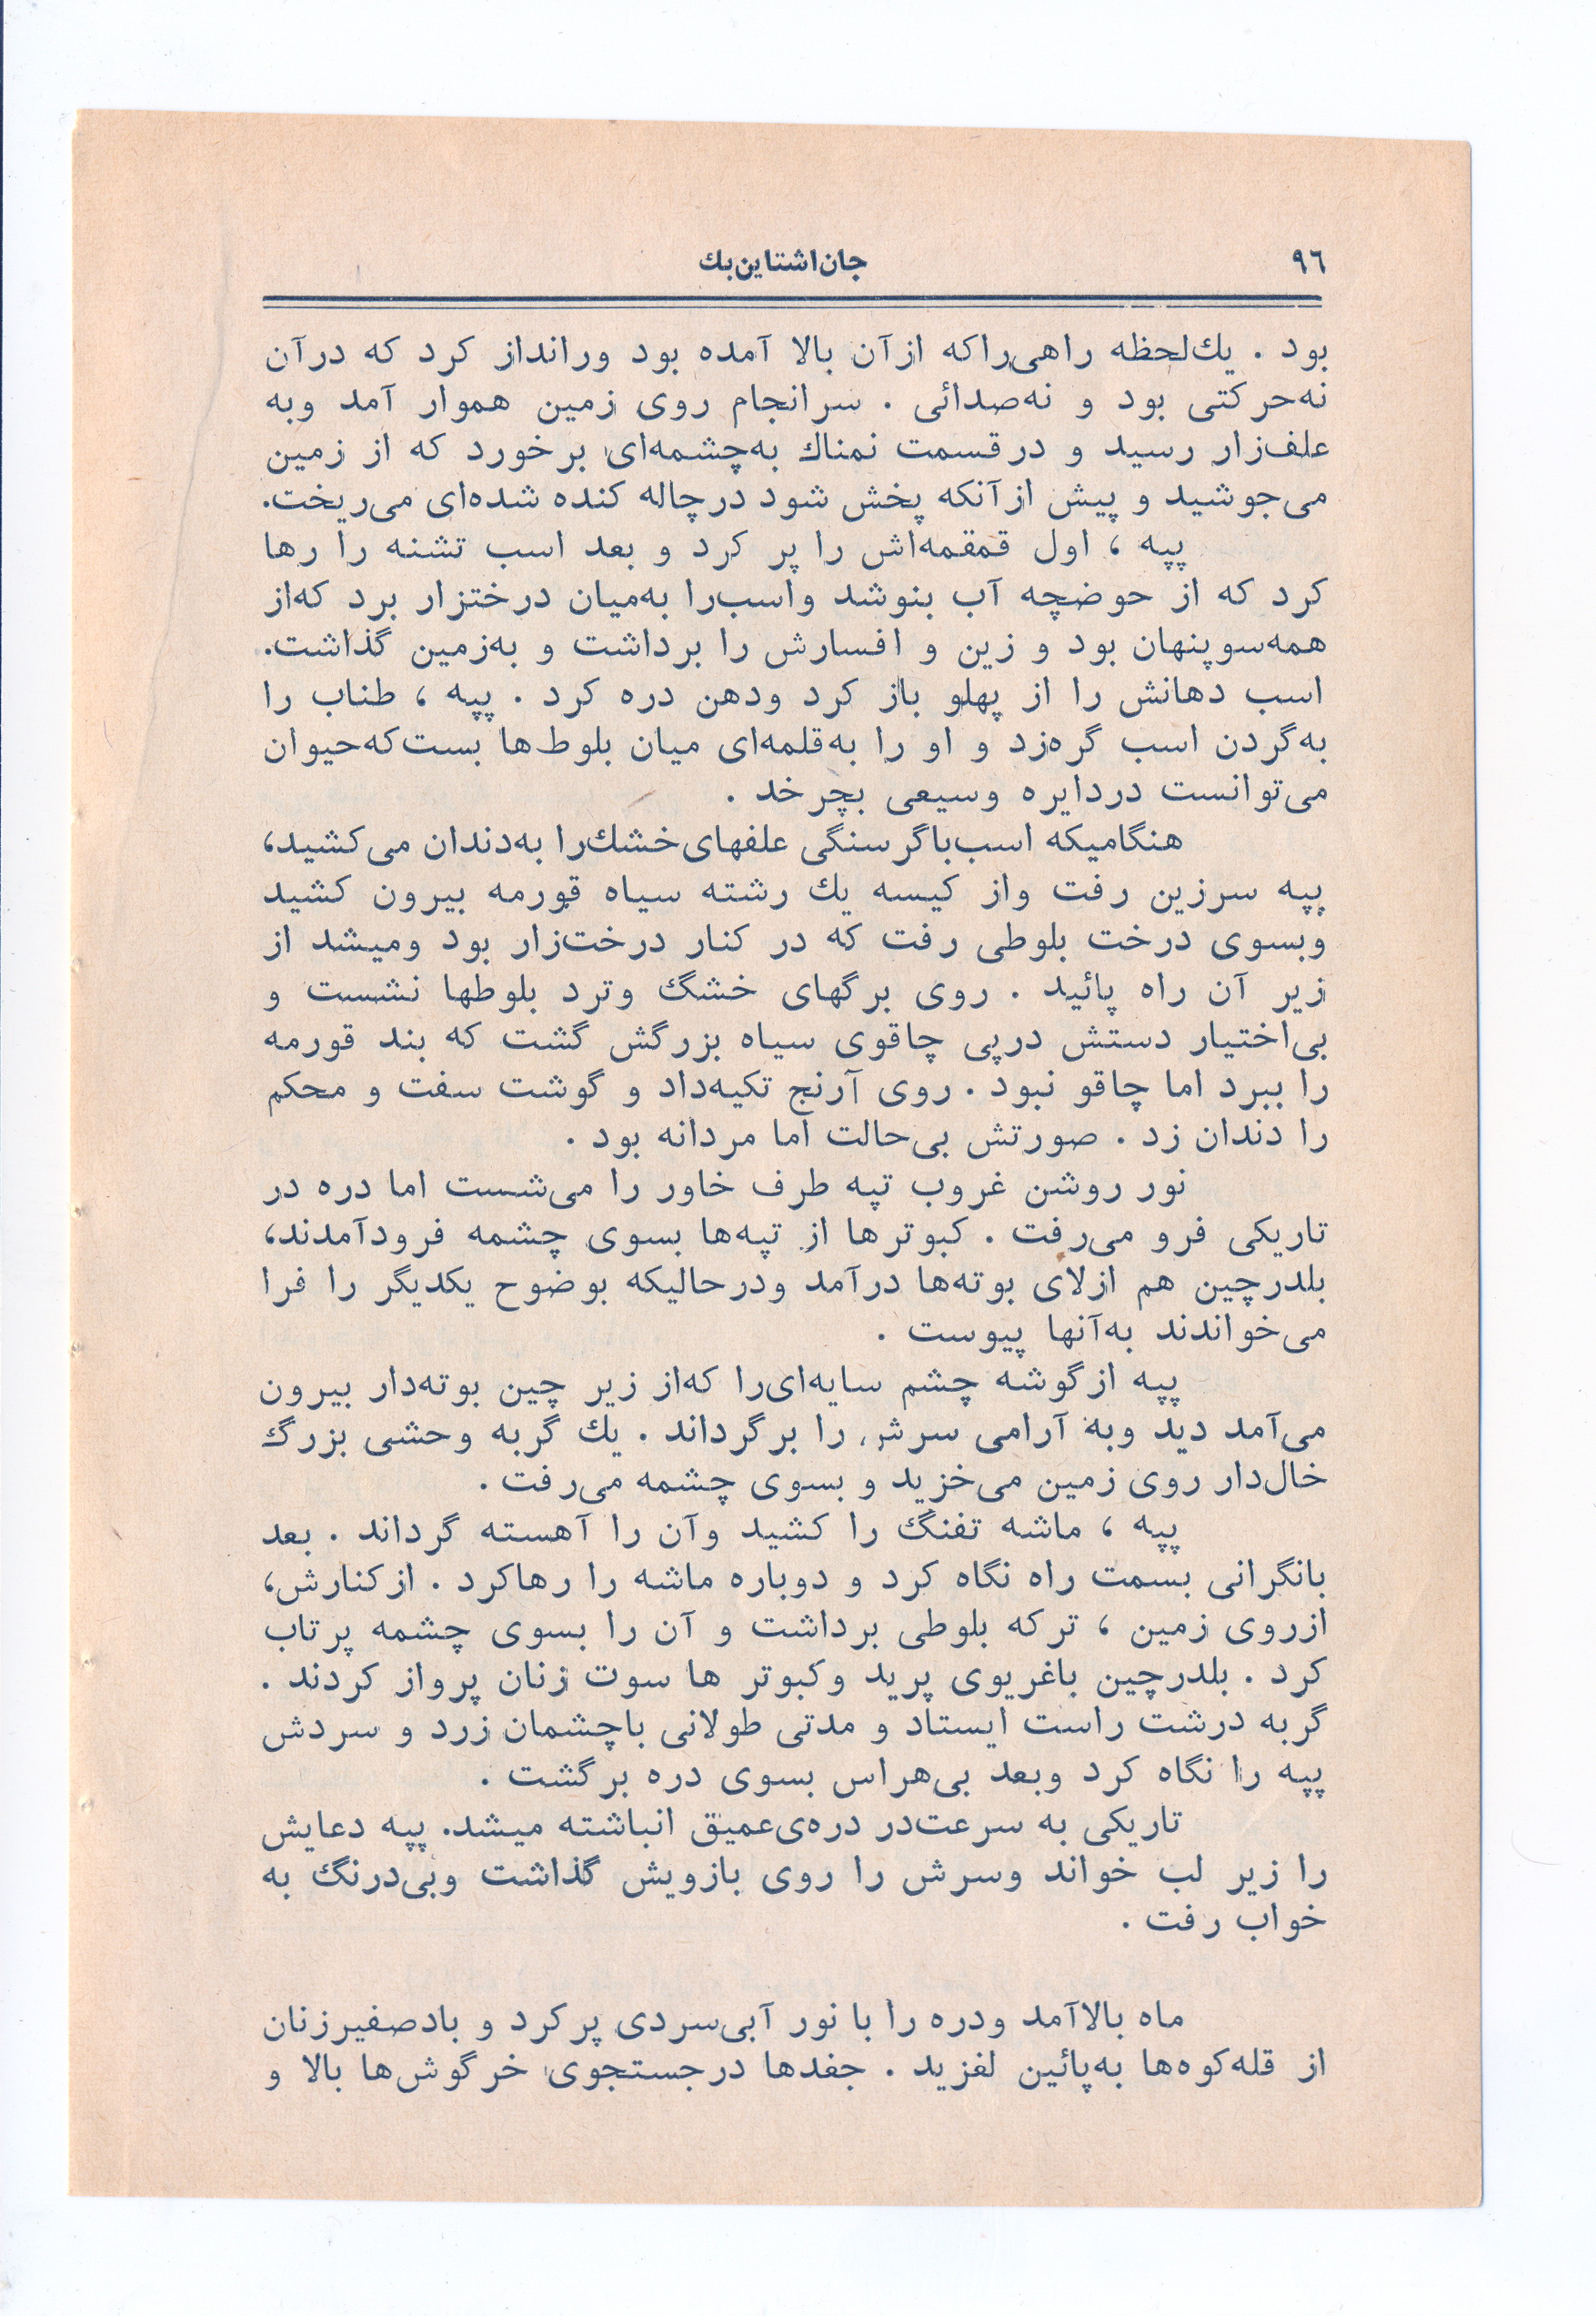 ۹۶
جان‌اشتاین‌بك
بود . یك‌لحظه راهی‌راکه ازآن بالا آمده بود ورانداز کرد که درآن
نه‌حرکتی بود و نه‌صدائی . سرانجام روی زمین هموار آمد وبه
علف‌زار رسید و درقسمت نمناك به‌چشمه‌ای برخورد که از زمین
می‌جوشید و پیش ازآنکه پخش شود درچاله کنده شده‌ای می‌ریخت.
پپه ، اول قمقمه‌اش را پر کرد و بعد اسب تشنه را رها
کرد که از حوضچه آب بنوشد واسب‌را به‌میان درختزار برد که‌از
همه‌سوپنهان بود و زین و افسارش را برداشت و به‌زمین گذاشت.
اسب دهانش را از پهلو باز کرد ودهن دره کرد . پپه ، طناب را
به‌گردن اسب گره‌زد و او را به‌قلمه‌ای میان بلوط‌ها بست‌که‌حیوان
می‌توانست دردایره وسیعی بچرخد .
هنگامیکه اسب‌باگرسنگی علفهای‌خشك‌را به‌دندان می‌کشید،
پپه سرزین رفت واز کیسه یك رشته سیاه قورمه بیرون کشید
وبسوی درخت بلوطی رفت که در کنار درخت‌زار بود ومیشد از
زیر آن راه پائید . روی برگهای خشگ وترد بلوطها نشست و
بی‌اختیار دستش درپی چاقوی سیاه بزرگش گشت که بند قورمه
را ببرد اما چاقو نبود . روی آرنج تکیه‌داد و گوشت سفت و محکم
را دندان زد . صورتش بی‌حالت اما مردانه بود .
نور روشن غروب تپه طرف خاور را می‌شست اما دره در
تاریکی فرو می‌رفت . کبوترها از تپه‌ها بسوی چشمه فرودآمدند،
بلدرچین هم ازلای بوته‌ها درآمد ودرحالیکه بوضوح یکدیگر را فرا
می‌خواندند به‌آنها پیوست .
پپه ازگوشه چشم سایه‌ای‌را که‌از زیر چین بوته‌دار بیرون
می‌آمد دید وبه آرامی سرش را برگرداند . یك گربه وحشی بزرگ
خال‌دار روی زمین می‌خزید و بسوی چشمه می‌رفت .
پپه ، ماشه تفنگ را کشید وآن را آهسته گرداند . بعد
بانگرانی بسمت راه نگاه کرد و دوباره ماشه را رهاکرد . ازکنارش،
ازروی زمین ، ترکه بلوطی برداشت و آن را بسوی چشمه پرتاب
کرد . بلدرچین باغریوی پرید وکبوتر ها سوت زنان پرواز کردند .
گربه درشت راست ایستاد و مدتی طولانی باچشمان زرد و سردش
پپه را نگاه کرد وبعد بی‌هراس بسوی دره برگشت .
تاریکی به سرعت‌در دره‌ی‌عمیق انباشته میشد. پپه دعایش
را زیر لب خواند وسرش را روی بازویش گذاشت وبی‌درنگ به
خواب رفت .
ماه بالاآمد ودره را با نور آبی‌سردی پرکرد و بادصفیرزنان
از قله‌کوه‌ها به‌پائین لغزید . جغدها درجستجوی خرگوش‌ها بالا و